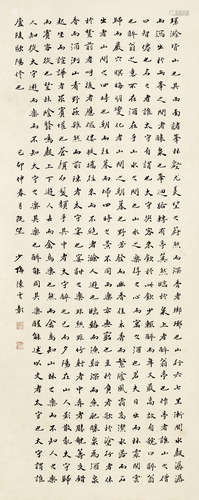 環滁皆山也其西南諸峰林壑尤美望之蔚然而深秀者瑯琊也山行六七里漸聞水聲潺潺
而瀉出於兩峯之間者釀泉也峯回路轉有亭翼然臨於泉上者醉翁亭也作亭者誰山之僧
智僊也名之者誰太守自謂也太守與客來飲於此飲少輒醉而年又最高故自號曰醉翁
也醉翁之意不在酒在乎山水之間也山水之樂得之心而寓之酒也若夫日出而林霏開雲
歸而巖穴暝晦明變化者山間之朝暮也野芳發而幽香佳木秀而繁陰風霜高潔水落而石
出者山間之四時也朝而往暮而歸四時之景不同而樂亦無窮也至於負者歌於塗行者休
於樹前者呼後者應傴僂提攜往來而不絕者滁人遊也臨谿而漁谿深而魚肥釀泉為酒泉
香而酒洌山肴野蔌雜然而前陳者太守宴也宴酣之樂非絲非竹射者中弈者勝觥籌交錯
起坐而諠譁者眾賓懽也蒼顏白髮頹乎其中者太守醉也已而夕陽在山人影散亂太守歸
而賓客從也樹林陰翳鳴聲上下遊人去而禽鳥樂也然而禽鳥知山林之樂而不知人之樂
人知從太守遊而樂而不知太守之樂其樂也醉能同其樂醒能述以文者太守也太守謂誰
廬陵歐陽修也 己卯仲春月既望 少梅陳雲彰